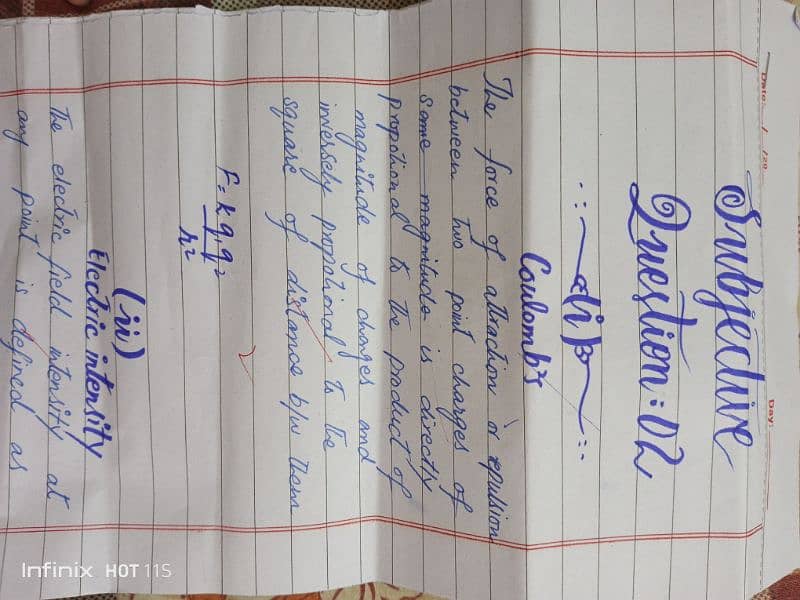 Date: / /20
Day:
Subjective
Question: 02
Coulomb's
The force of attraction or repulsion
between two point charges of
same magnitude is directly
propotional to the product of
magnitude of charges and
inversely propotional to the
square of distance b/w them
F = k q1 q2
r²
(ii)
Electric intensity
The electric field intensity at
any point is defined as
Infinix HOT 11S